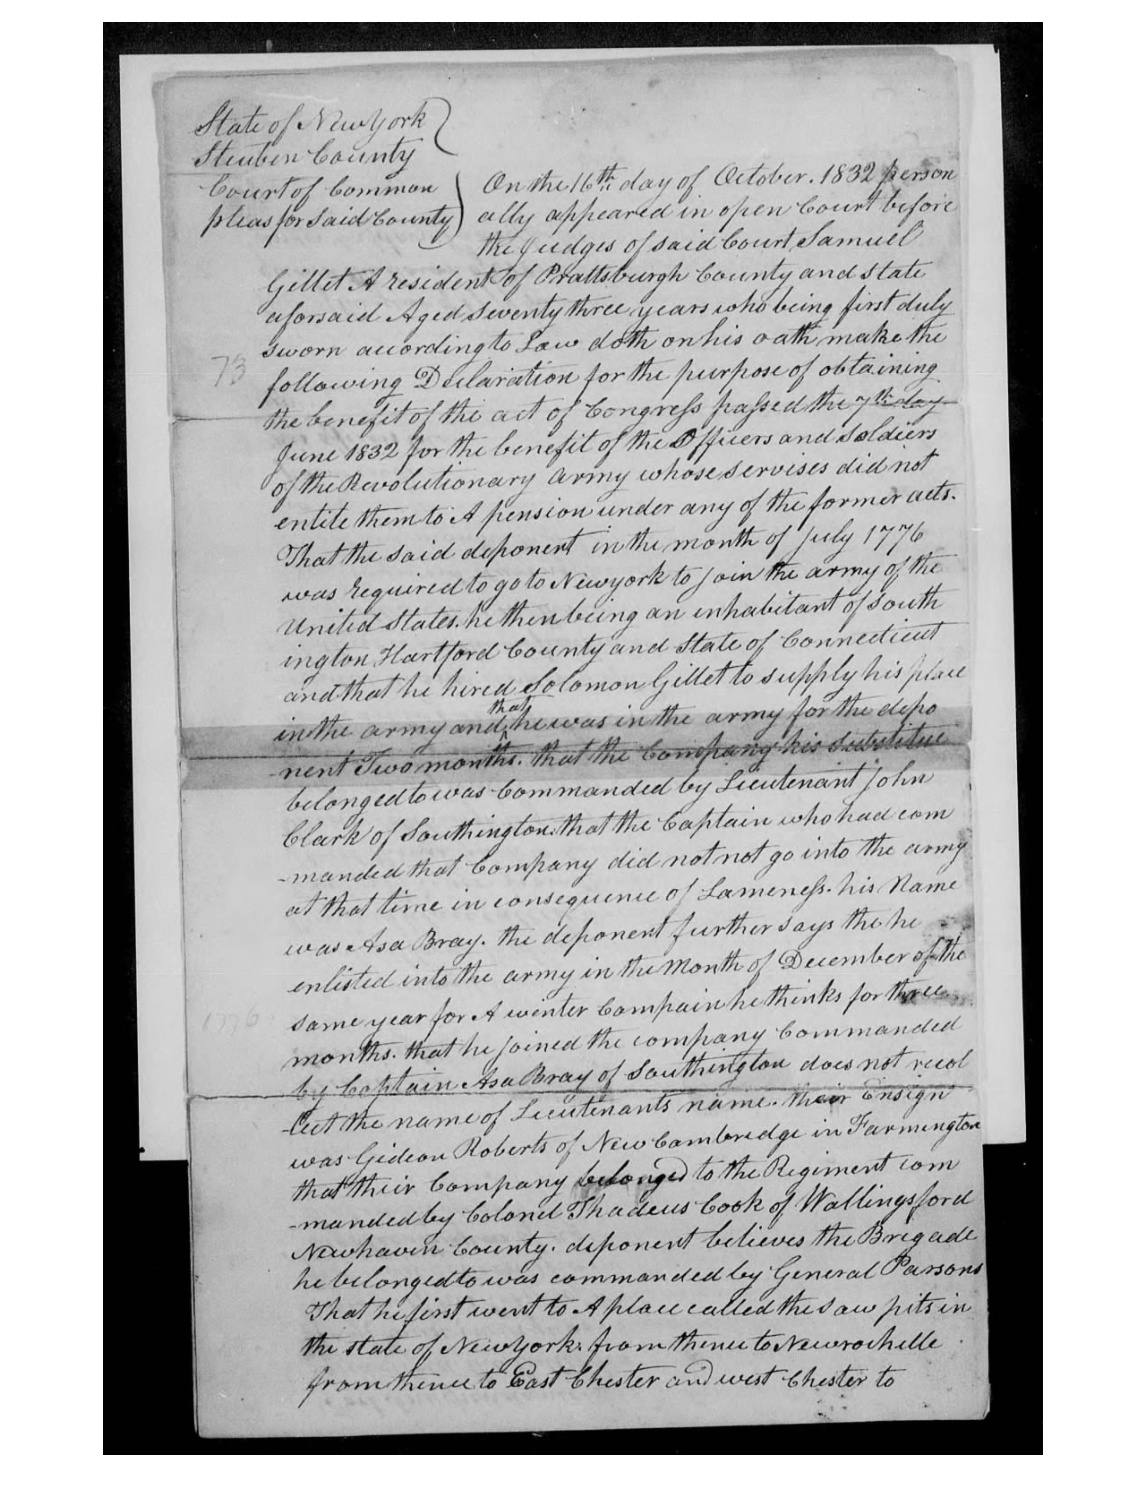 State of New York
Steuben County
Court of Common
pleas for Said County
On the 16th day of October. 1832 person
ally appeared in open Court before
the Judges of said Court Samuel
Gillet A resident of Prattsburgh County and state
aforsaid Aged Seventy three years who being first duly
sworn according to Law doth on his oath make the
73
following Declaration for the purpose of obtaining
the benefit of the act of Congress passed the 7th day
June 1832 for the benefit of the Officers and Soldiers
of the Revolutionary army whose servises did not
entite them to A pension under any of the former acts.
That the said deponent in the month of July 1776
was required to go to Newyork to join the army of the
United States. he then being an inhabitant of South
ington Hartford County and State of Connecticut
and that he hired Solomon Gillet to supply his place
in the army and that he was in the army for the depo
nent Two months. that the Company his Substitue
belonged to was Commanded by Lieutenant John
Clark of Southington. that the Captain who had com
-manded that Company did not not go into the army
at that time in consequence of Lameness. his Name
was Asa Bray. the deponent further says the he
enlisted into the army in the Month of December of the
same year for A winter Campain he thinks for three
1776
months. that he joined the company Commanded
by Captain Asa Bray of Southington does not recol
-lect the name of Lieutenants name. their Ensign
was Gideon Roberts of New Cambredge in Farmington
that their Company belonged to the Regiment com
-manded by Colonel Thadeus Cook of Wallingsford
Newhaven County. deponent believes the Brigade
he belonged to was commanded by General Parsons
That he first went to A place called the saw pits in
the state of New York. from thence to Newrochelle
from thence to East Chester and west Chester to